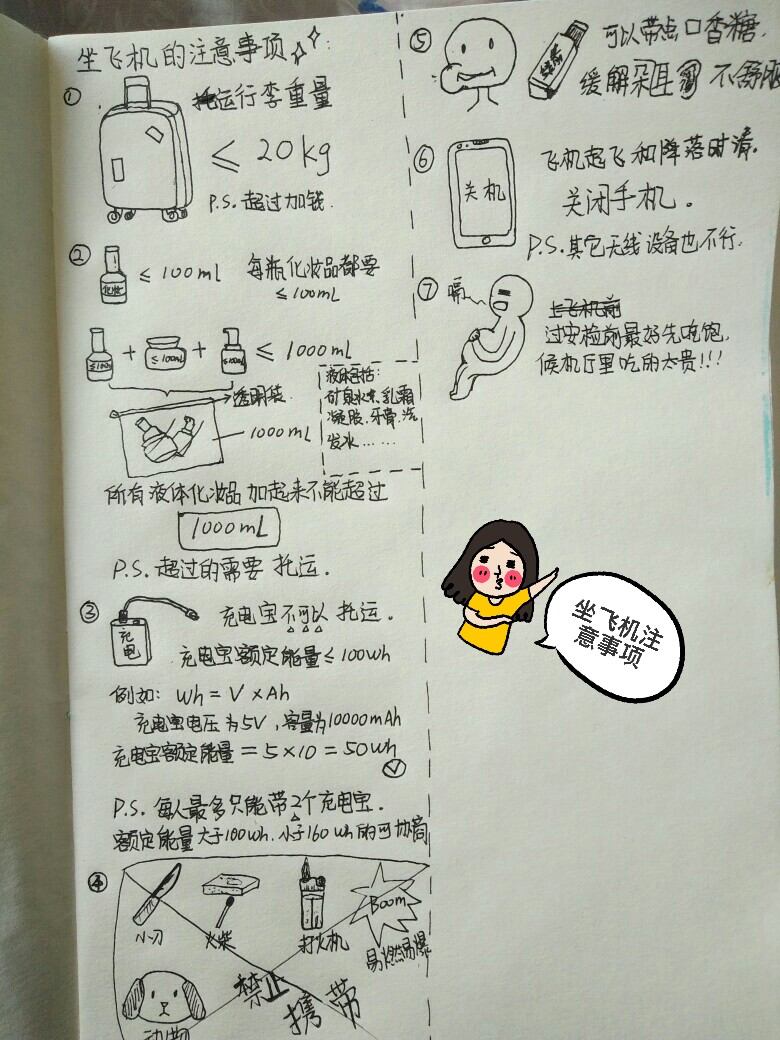 坐飞机的注意事项
①
托运行李重量
≤ 20kg
P.S. 超过加钱.
②
化妆
≤ 100mL
每瓶化妆品都要
≤100mL
≤100mL + ≤100mL + ≤100mL ≤ 1000mL
透明袋.
1000mL
液体包括:
矿泉水、乳霜
凝胶、牙膏、洗
发水……
所有液体化妆品加起来不能超过
1000mL
P.S. 超过的需要托运.
③
充电
充电宝不可以托运.
充电宝额定能量≤100Wh
例如: Wh = V × Ah
充电宝电压为5V, 容量为10000mAh
充电宝额定能量 = 5×10 = 50Wh
P.S. 每人最多只能带2个充电宝.
额定能量大于100Wh.小于160Wh的可协商
④
小刀
火柴
打火机
BOOM
易燃易爆
动物
禁止携带
⑤
可以带点口香糖.
缓解耳朵不舒服
⑥
关机
飞机起飞和降落时请.
关闭手机.
P.S.其它无线设备也不行.
⑦
嗝
上飞机前
过安检前最好先吃饱.
候机厅里吃的太贵!!!
坐飞机注
意事项